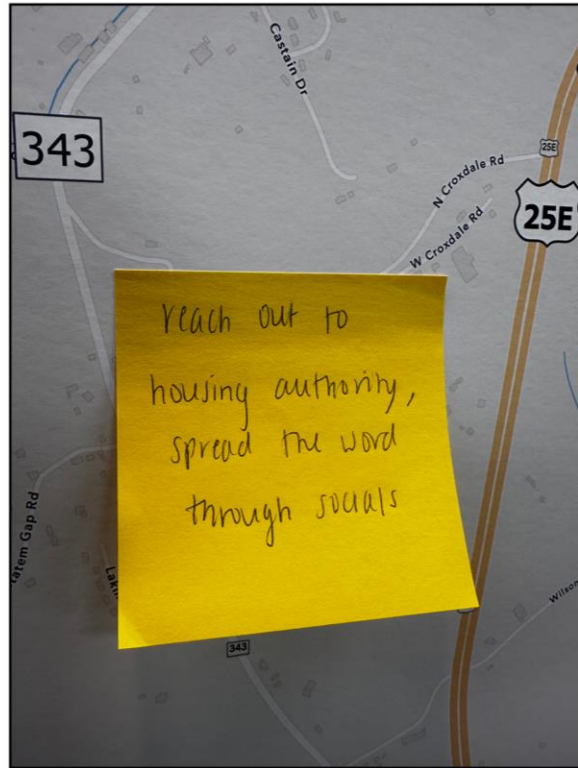 Castain Dr
343
25E
N Croxdale Rd
25E
W Croxdale Rd
reach out to
housing authority,
spread the word
through socials
tatem Gap Rd
Lakin
Wilson
343